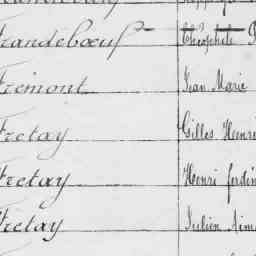 randebœuf Théophile
Fremont Jean Marie
Fretay Gilles Henri
Fretay Henri ferdin
Fretay Julien Aimé